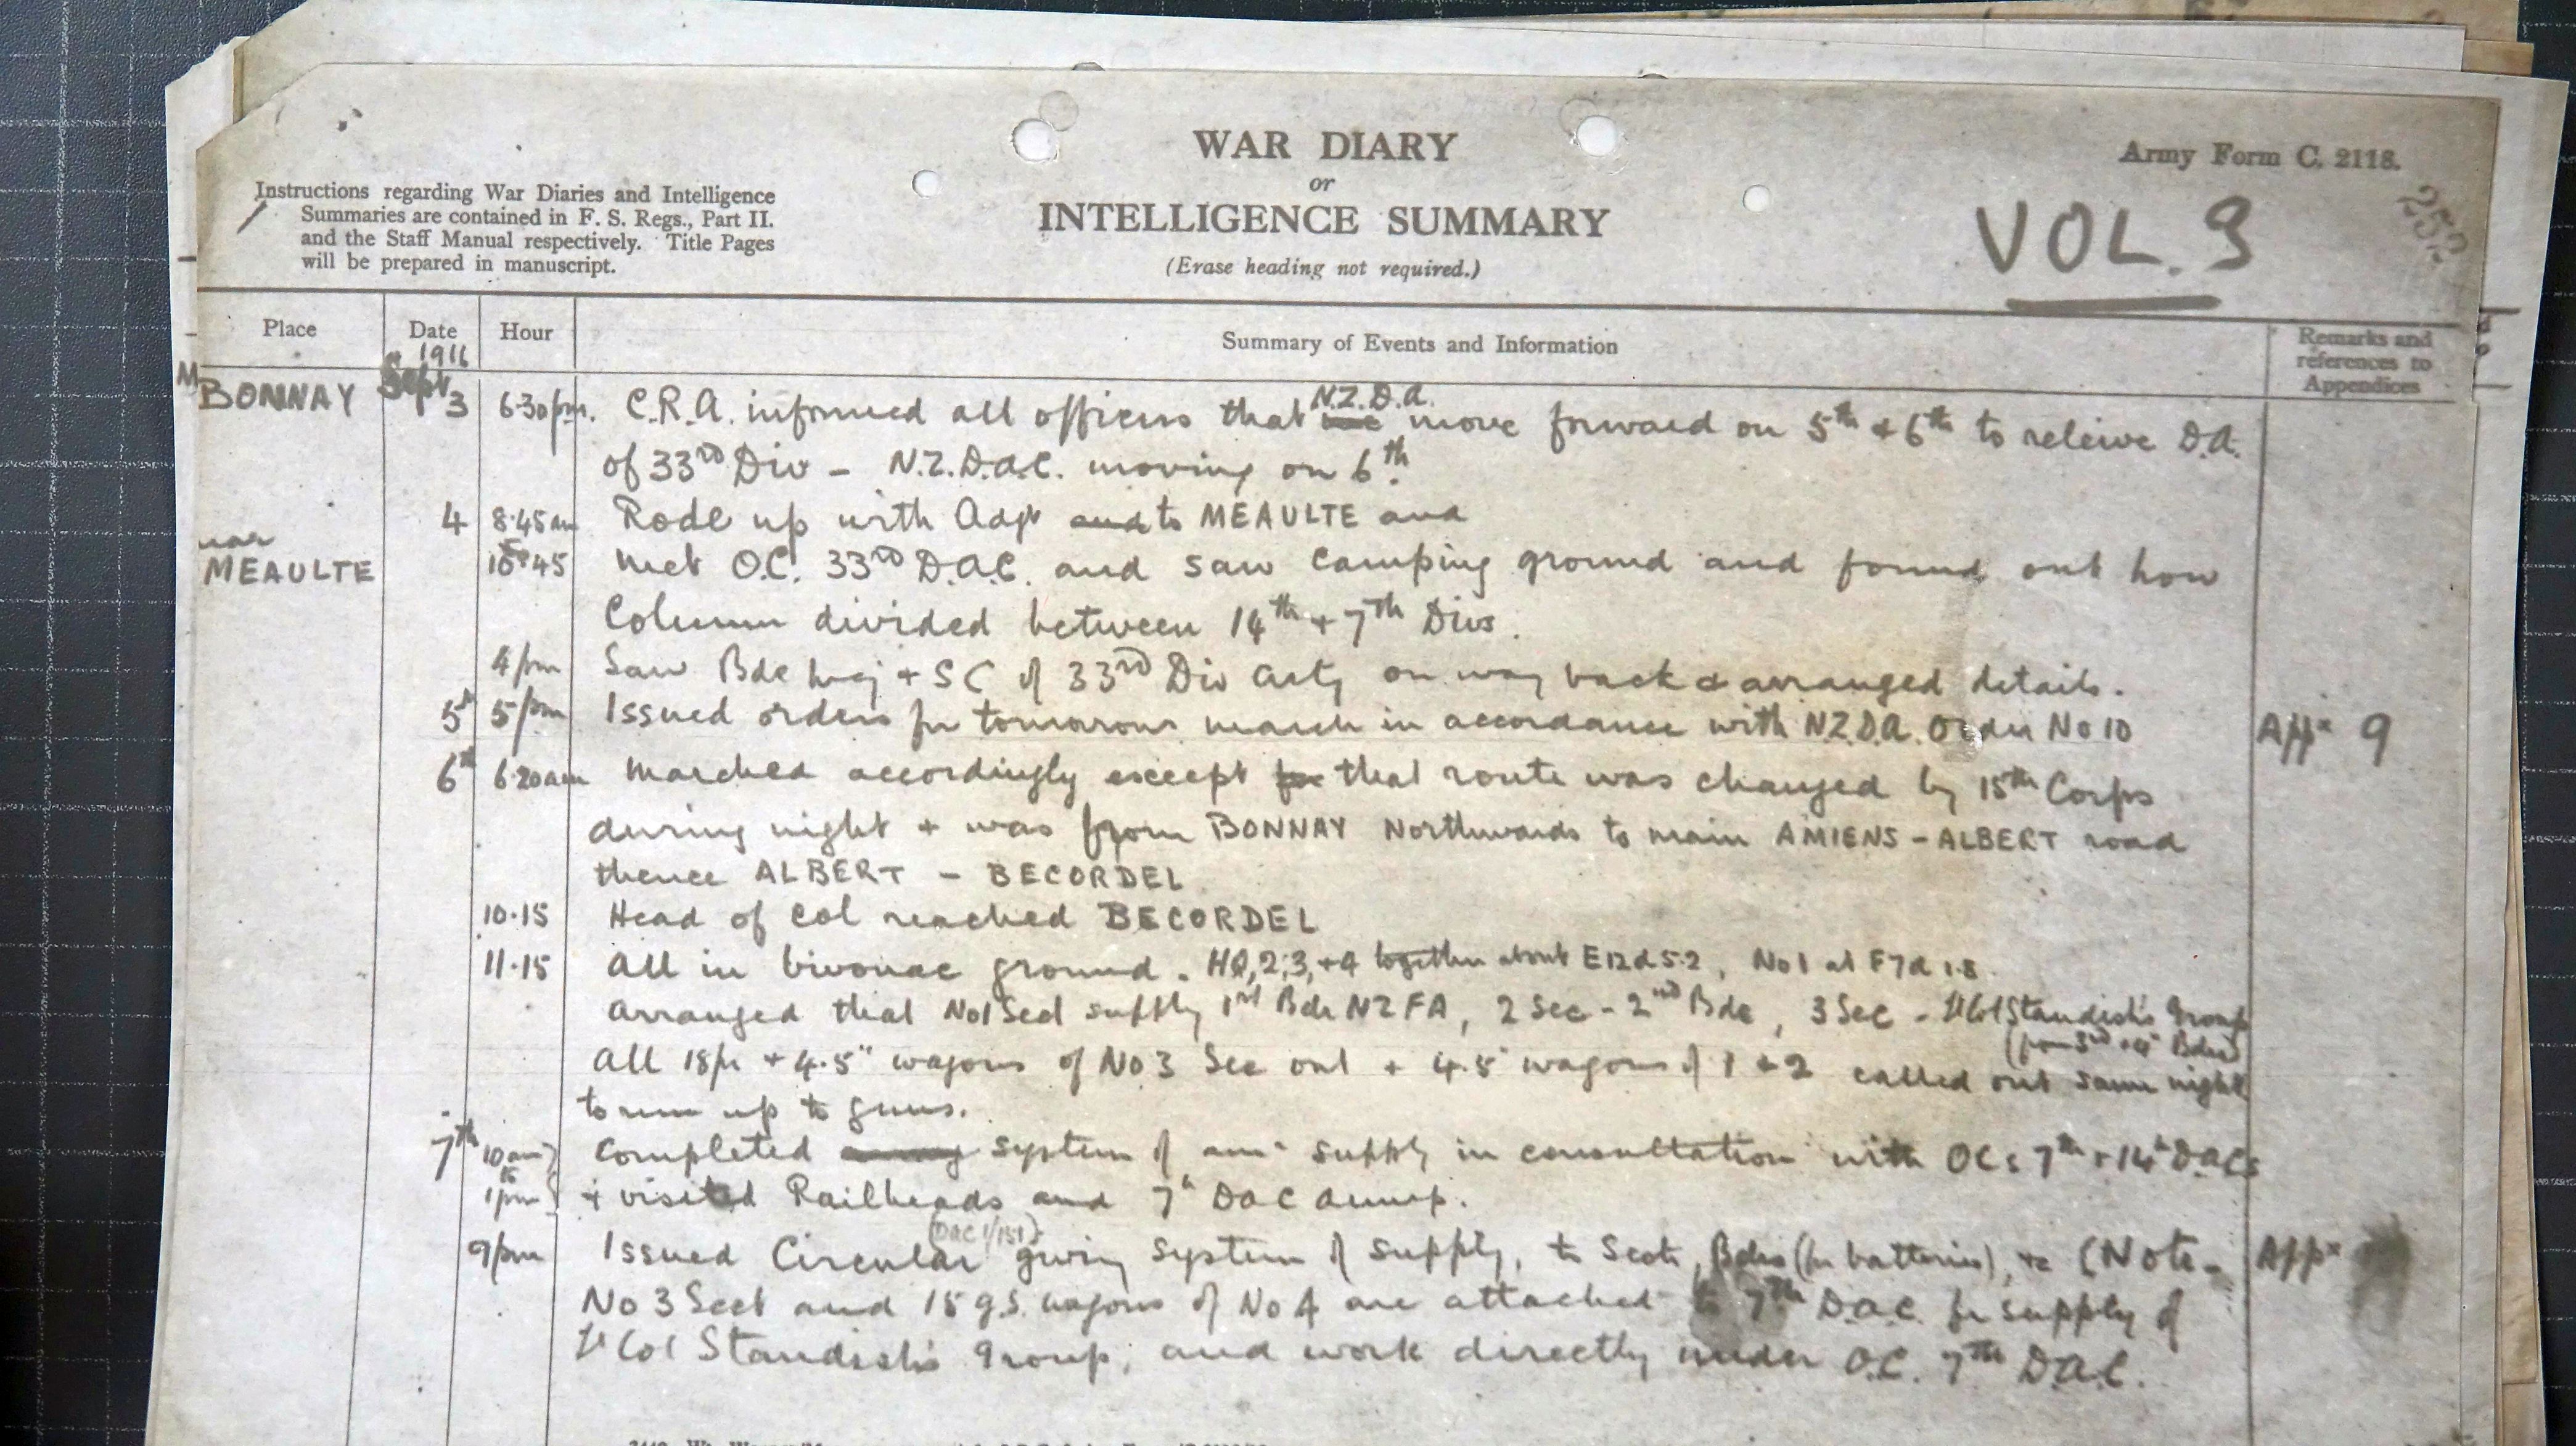 WAR DIARY
or
INTELLIGENCE SUMMARY
(Erase heading not required.)
Army Form C. 2118.
VOL. 9
252
Instructions regarding War Diaries and Intelligence
Summaries are contained in F. S. Regs., Part II.
and the Staff Manual respectively. Title Pages
will be prepared in manuscript.
Place Date Hour Summary of Events and Information Remarks and references to Appendices
1916
BONNAY Sept 3 6.30pm. C.R.A. informed all officers that N.Z.D.A. move forward on 5th & 6th to releive D.A.
of 33rd Div – N.Z.D.A.C. moving on 6th.
4 8.45am Rode up with Adjt and to MEAULTE and
near MEAULTE 10.45 met O.C. 33rd D.A.C. and saw camping ground and found out how
Column divided between 14th + 7th Divs.
4pm Saw Bde Maj + SC of 33rd Div Arty on way back & arranged details.
5th 5pm Issued orders for tomorrows march in accordance with N.Z.D.A. Order No 10 Appx 9
6th 6.20am Marched accordingly except for that route was changed by 15th Corps
during night + was from BONNAY Northwards to main AMIENS – ALBERT road
thence ALBERT – BECORDEL
10.15 Head of Col reached BECORDEL
11.15 All in bivouac ground. HQ, 2, 3, +4 together about E12d 5.2, No 1 at F7d 1.8.
Arranged that No1 Sect supply 1st Bde NZFA, 2 Sec - 2nd Bde, 3 Sec - Lt Col Standish's Group
(from 3rd + 4th Bdes)
All 18pr + 4.5" wagons of No 3 Sec out + 4.5 wagons of 1 + 2 called out same night
to run up to guns.
7th 10am to 1pm Completed system of amn supply in consultation with OCs 7th + 14th DACs
+ visited Railheads and 7th DAC dump.
(DAC 1/151)
9pm Issued Circular giving system of supply, to Sects, Bdes (for batteries), &c (Note - Appx
No 3 Sect and 15 g.s. wagons of No 4 are attached to 7th D.A.C. for supply of
Lt Col Standish's Group, and work directly under O.C. 7th D.A.C.